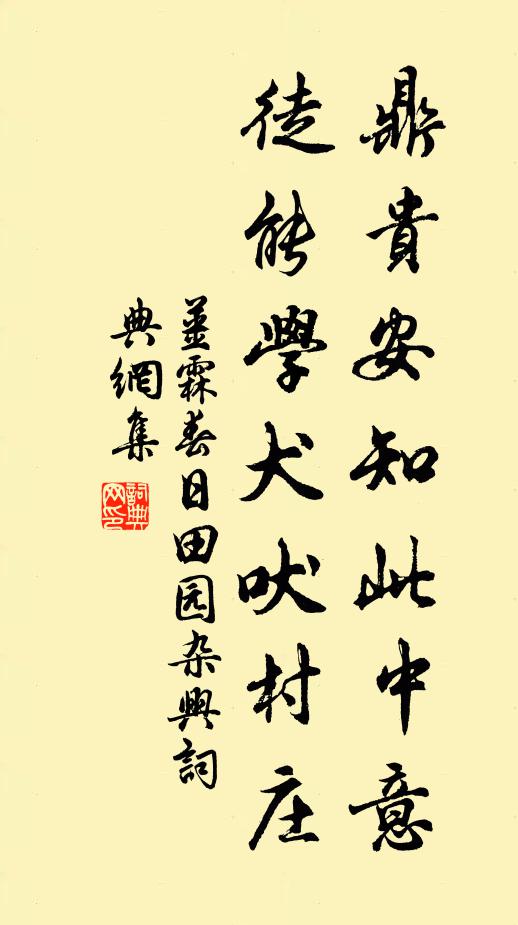 鼎貴安知此中意
徒能學犬吠村庄
姜霖春日田园杂興詞
典網集
詞典网印